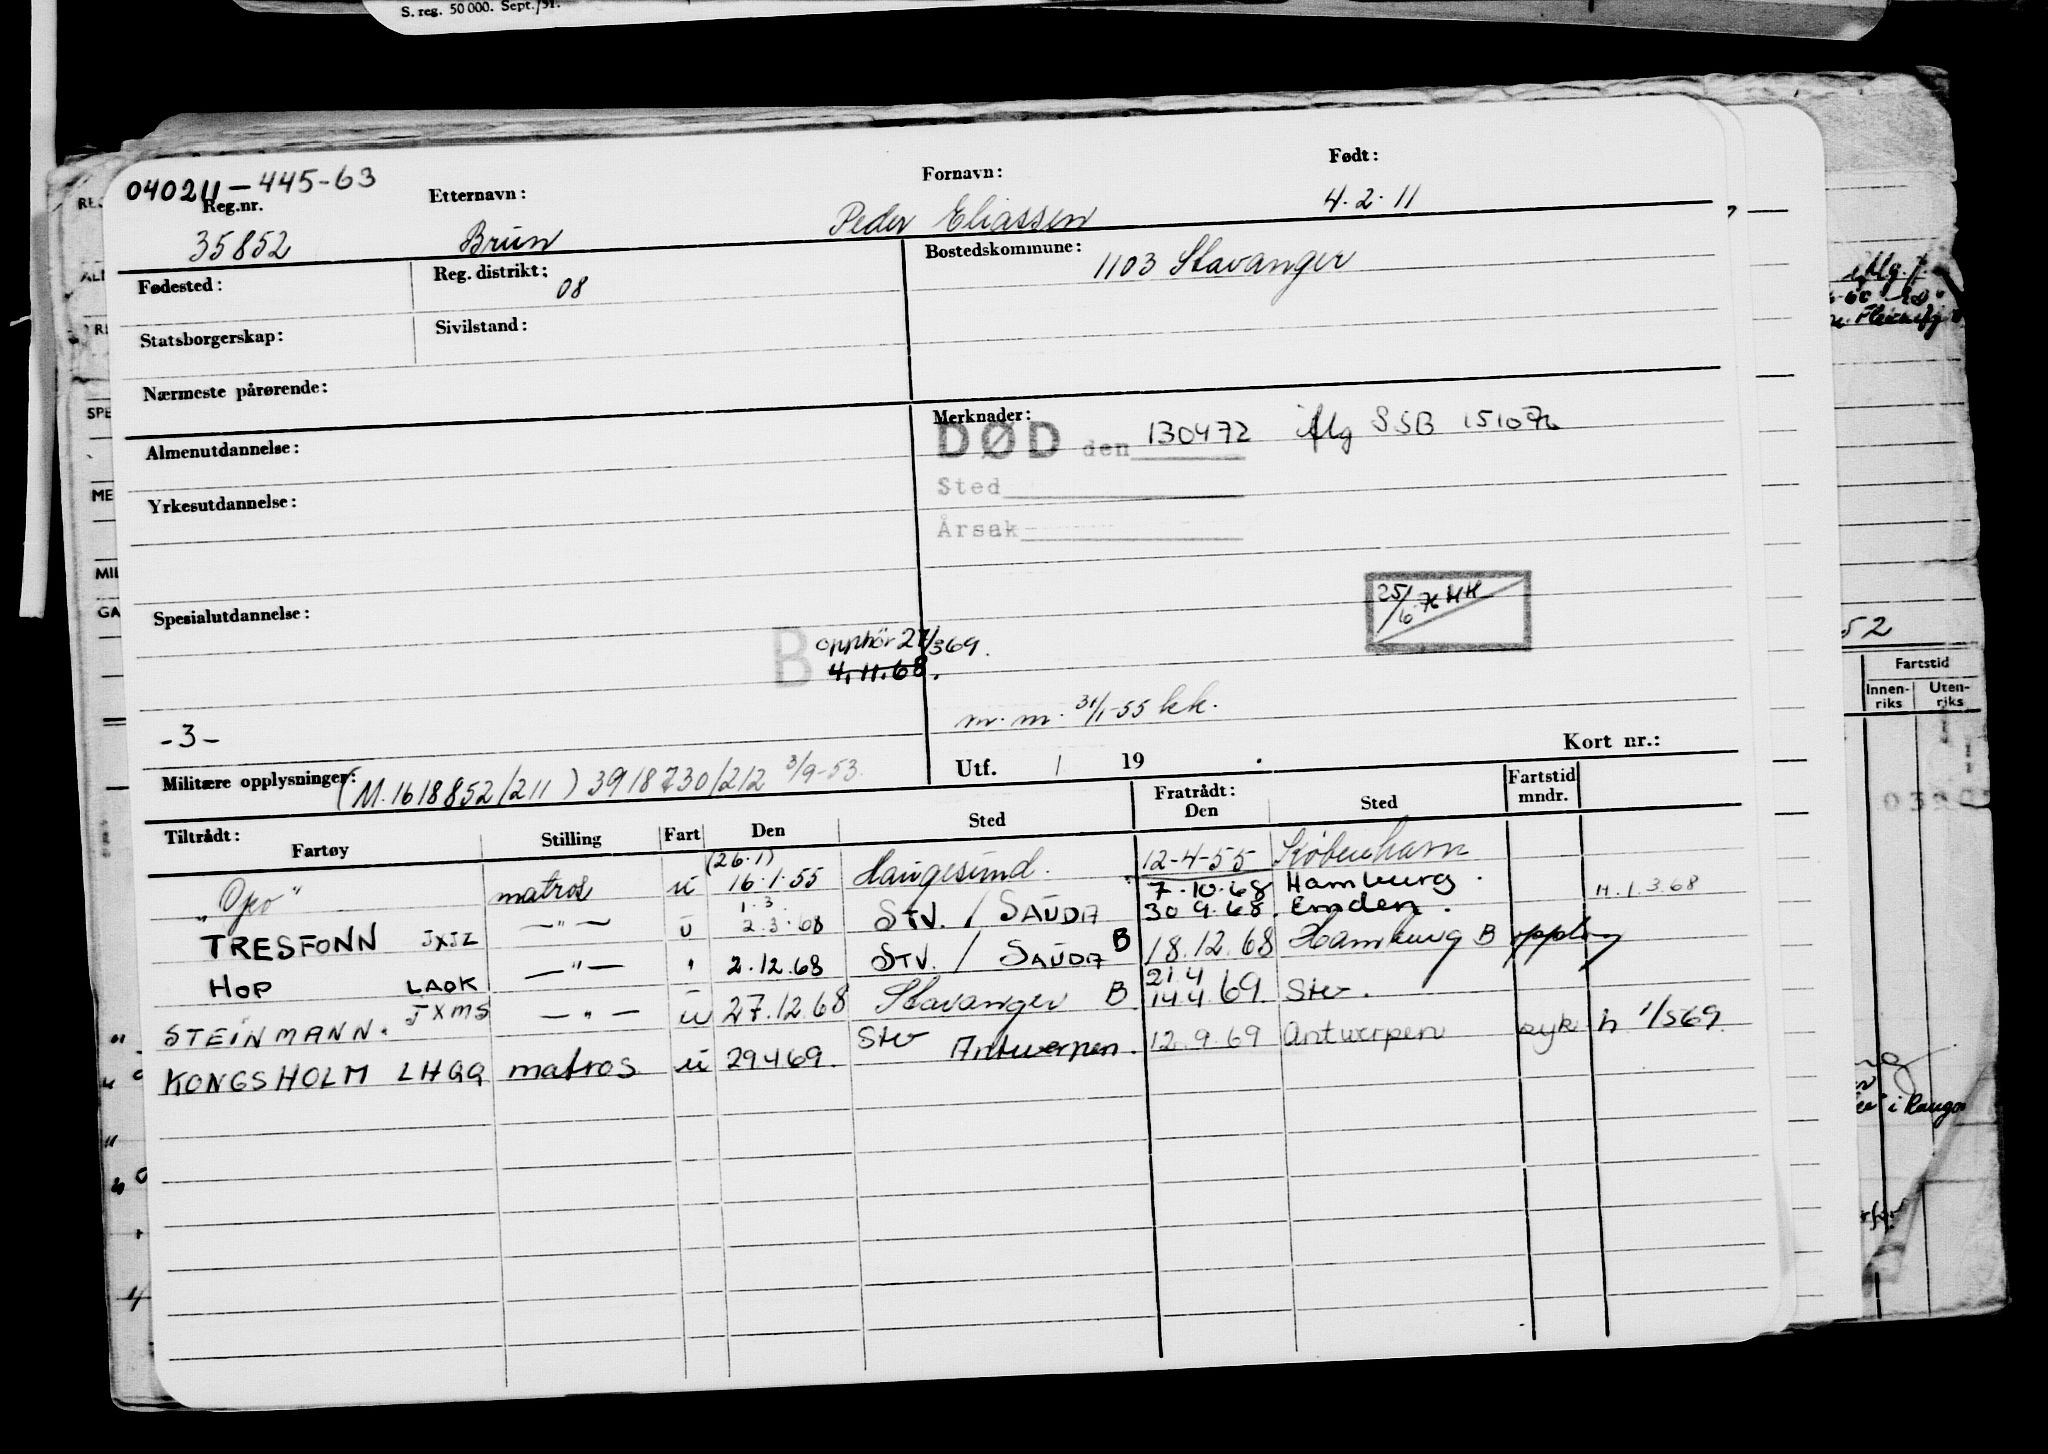 S. reg. 50 000. Sept./51.
040211-445-63
Reg.nr. Etternavn: Fornavn: Født:
35852 Brun Peder Eliassen 4.2.11
Fødested: Reg. distrikt: 08 Bostedskommune: 1103 Stavanger
Statsborgerskap: Sivilstand:
Nærmeste pårørende:
Almenutdannelse: Merknader:
DØD den 130472 iflg SSB 151076
Sted
Yrkesutdannelse:
Årsak
Spesialutdannelse:
25/10 76 HK
B opphör 27/369.
4.11.68.
m.m. 31/1-55 kk.
-3-
Utf. / 19 Kort nr.:
Militære opplysninger: (M.1618852/211) 3918730/212 3/9-53.
Tiltrådt: Fratrådt: Fartstid
Fartøy Stilling Fart Den Sted Den Sted mndr.
"Opo" matros u (26.1) 16.1.55 Haugesund. 12-4-55 København
TRESFONN JXJZ —"— u 1.3. 2.3.68 STV. / SAUDA 7.10.68 Hamburg. 30 9.68. Emden. H.1.3.68
HOP LAOK —"— " 2.12.68 STV. / SAUDA B 18.12.68 Hamburg B
STEINMANN. JXMS —"— u 27.12.68 Stavanger B 21.4 14.4.69. Stv.
KONGSHOLM LHQQ matros u 29.4.69. Stv Antwerpen. 12.9.69 Antwerpen syk h 1/569.
52
Fartstid
Innen-riks Uten-riks
i Rango